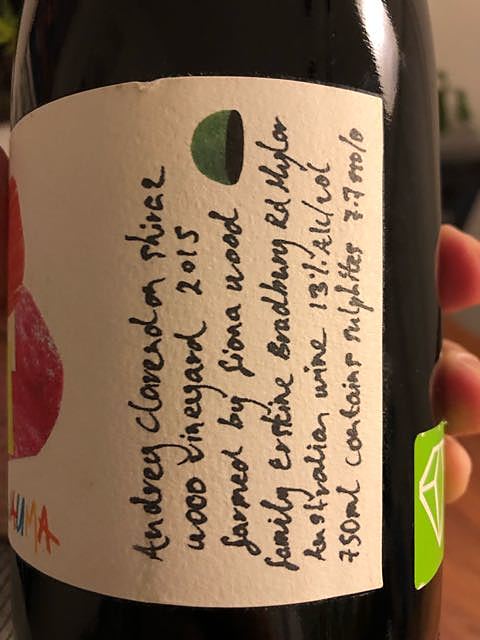 Audrey Clarendon Shiraz
Wood Vineyard 2015
farmed by Fiona Wood
family Erskine Bradbury Rd Mylor
Australian wine 13% Alc/vol
750ml contains sulphites 7.7
AUMA